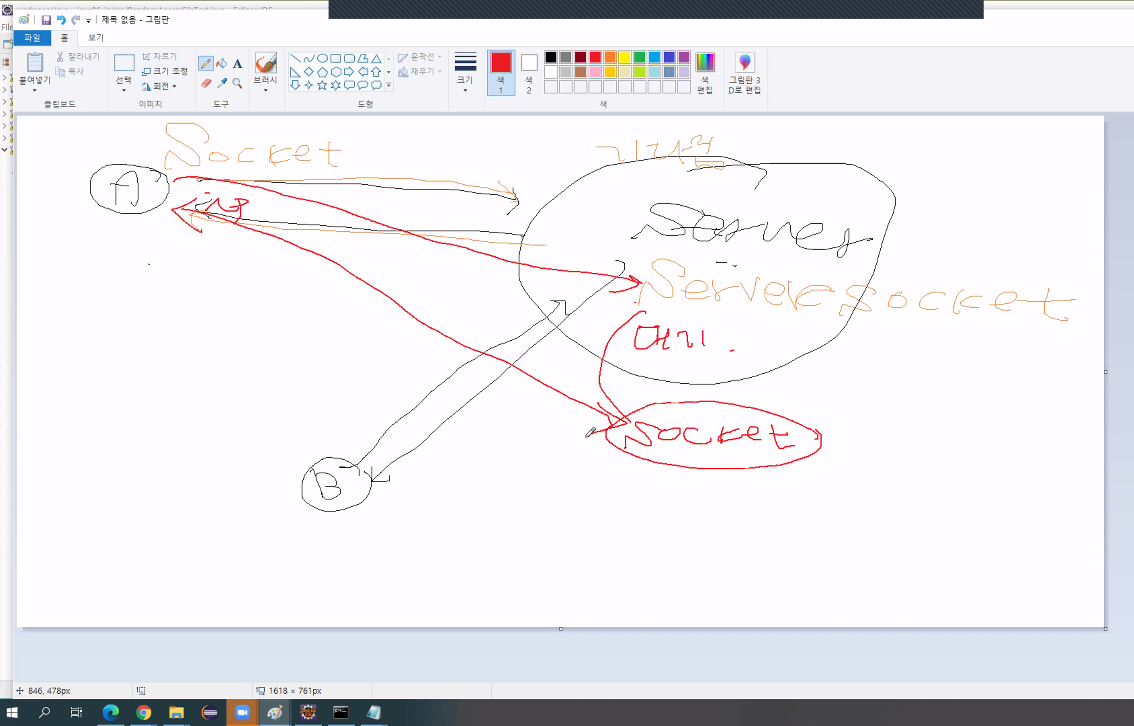 제목 없음 - 그림판
File
파일 홈 보기
붙여넣기
잘라내기
복사
클립보드
선택
자르기
크기 조정
회전
이미지
A
도구
브러시
윤곽선
채우기
도형
크기
색 1
색 2
색 편집
색
그림판 3D로 편집
Socket
A
ip
Server
ServerSocket
대기
Socket
B
846, 478px
1618 × 761px